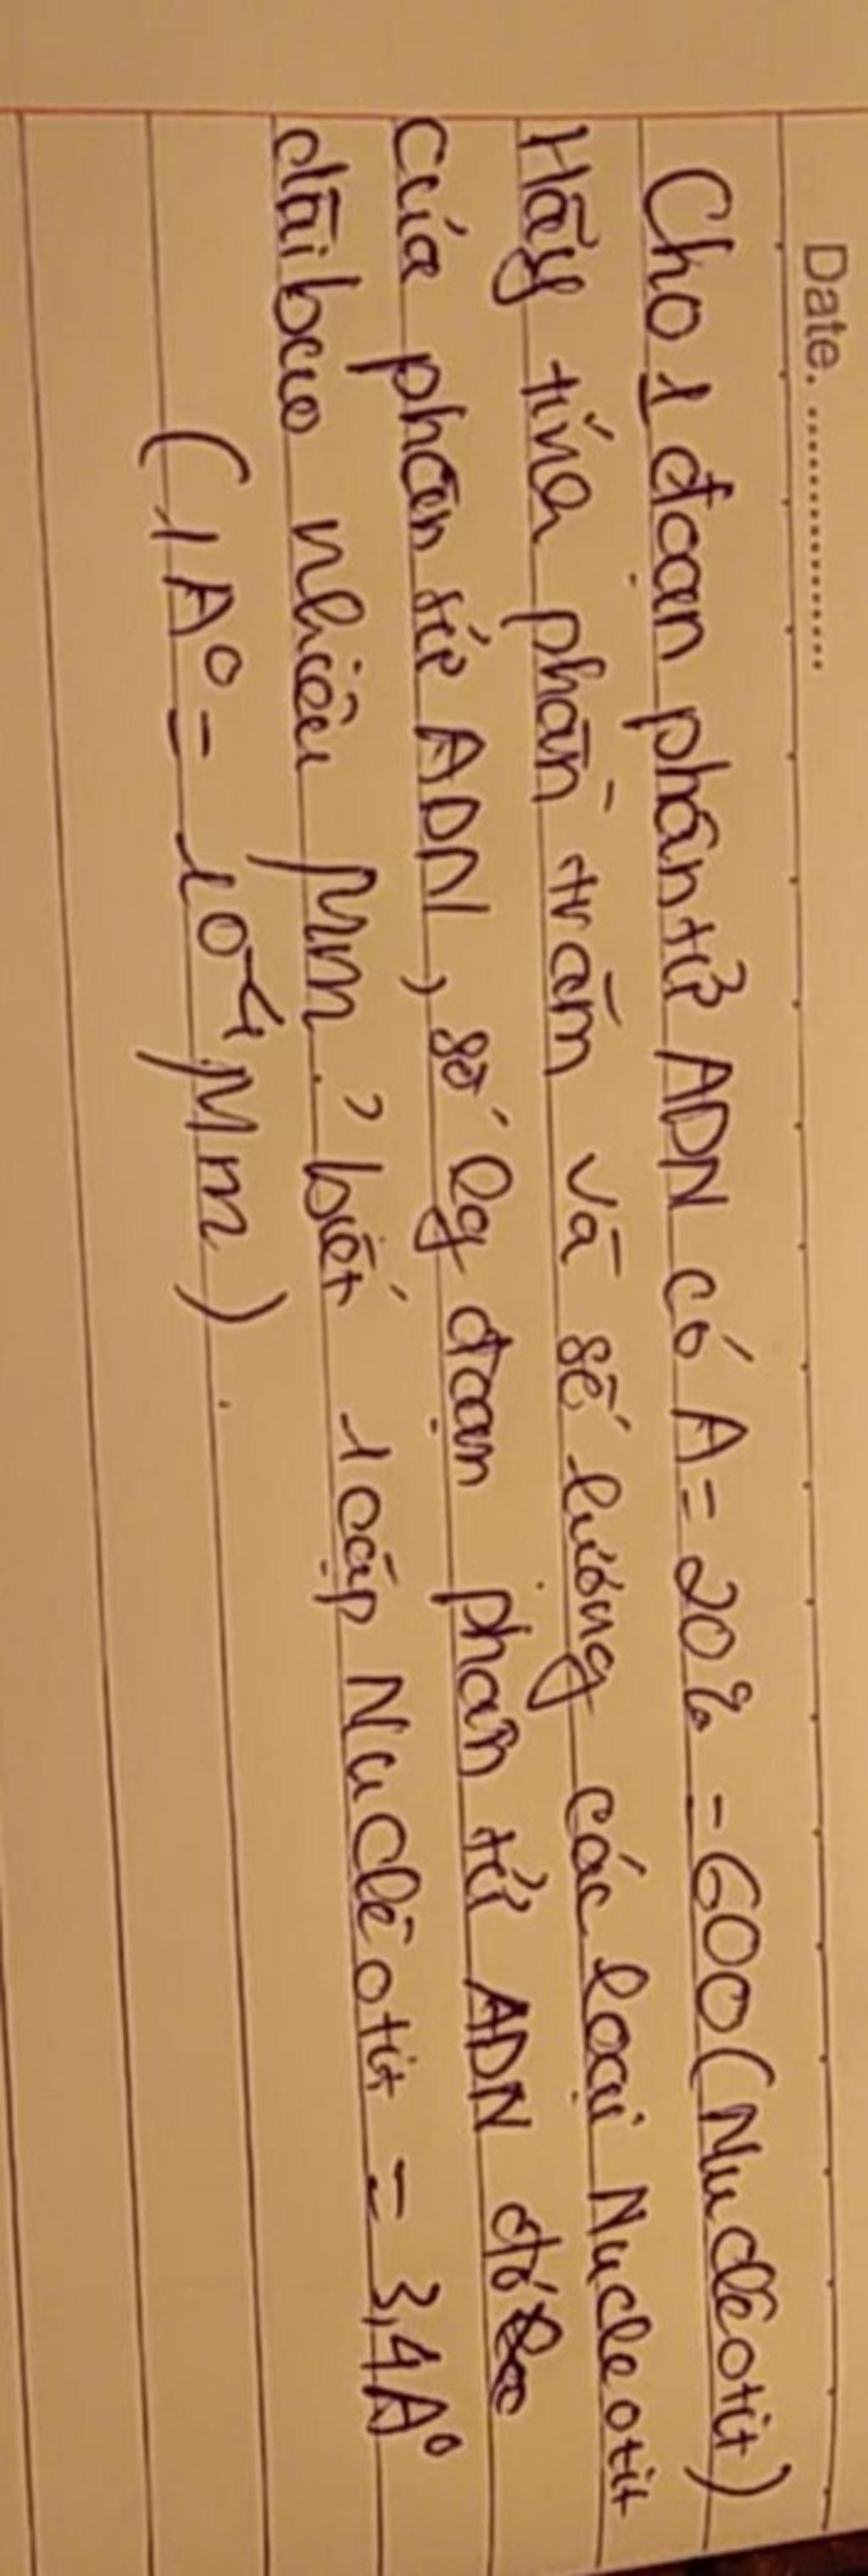 Date. ................
Cho 1 đoạn phân tử ADN có A = 20% = 600 (Nuclêotit)
Hãy tính phần trăm và số lượng các loại Nucleotit
của phân tử ADN, số lg đoạn phân tử ADN đó
dài bao nhiêu µm? biết 1 cặp Nuclêotit = 3,4A⁰
(1A⁰ = 10⁻⁴ µm)